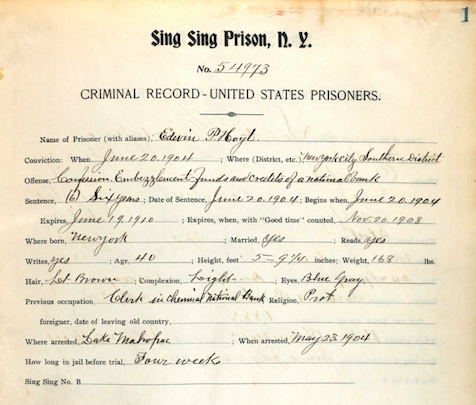 1
Sing Sing Prison, N. Y.
No. 54973
CRIMINAL RECORD-UNITED STATES PRISONERS.
Name of Prisoner (with aliases), Edwin P Hoyt
Conviction: When June 20.1904 ; Where (District, etc.) New York City Southern District
Offense, Confession Embezzlement funds and credits of a national bank
Sentence, (6) Six years ; Date of Sentence, June 20.1904 ; Begins when, June 20.1904
Expires, June 19.1910 ; Expires, when, with "Good time" counted, Nov. 20.1908
Where born, New York ; Married, yes ; Reads, yes
Writes, yes ; Age, 40 ; Height, feet 5 - 9 1/4 inches; Weight, 168 lbs.
Hair, Lgt Brown ; Complexion, Light ; Eyes, Blue Gray
Previous occupation, Clerk in Chemical National Bank Religion, Prot
foreigner, date of leaving old country,
Where arrested, Lake Mahopac ; When arrested, May 23.1904
How long in jail before trial, Four week
Sing Sing No. B